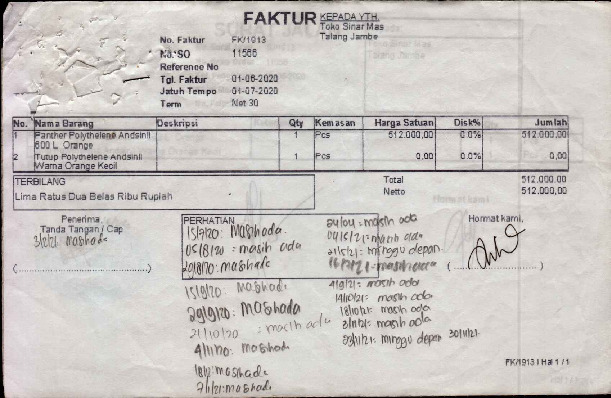 FAKTUR KEPADA YTH.
Toko Sinar Mas
Talang Jambe
No. Faktur FK/1913
No. SO 11566
Reference No
Tgl. Faktur 01-06-2020
Jatuh Tempo 01-07-2020
Term Net 30
No. Nama Barang Deskripsi Qty Kemasan Harga Satuan Disk% Jumlah
1 Panther Polythelene Andsinli 1 Pcs 512.000,00 0.0% 512.000,00
600 L Orange
2 Tutup Polythelene Andsinli 1 Pcs 0,00 0.0% 0,00
Warna Orange Kecil
TERBILANG
Lima Ratus Dua Belas Ribu Rupiah
Total 512.000,00
Netto 512.000,00
Penerima,
Tanda Tangan / Cap
PERHATIAN
Hormat kami,
15/7/20: Mashada
05/8/20: masih ada
29/8/20: mashada
15/9/20: Mashada
29/9/20: Mashada
21/10/20: masih ada
4/11/20: Mashada
mashada
7/1/21: mashada
masih ada
masih ada
minggu depan
4/9/21: masih ada
14/10/21: masih ada
18/10/21: masih ada
masih ada
minggu depan 30/11/21
FK/1913 I Hal 1 / 1